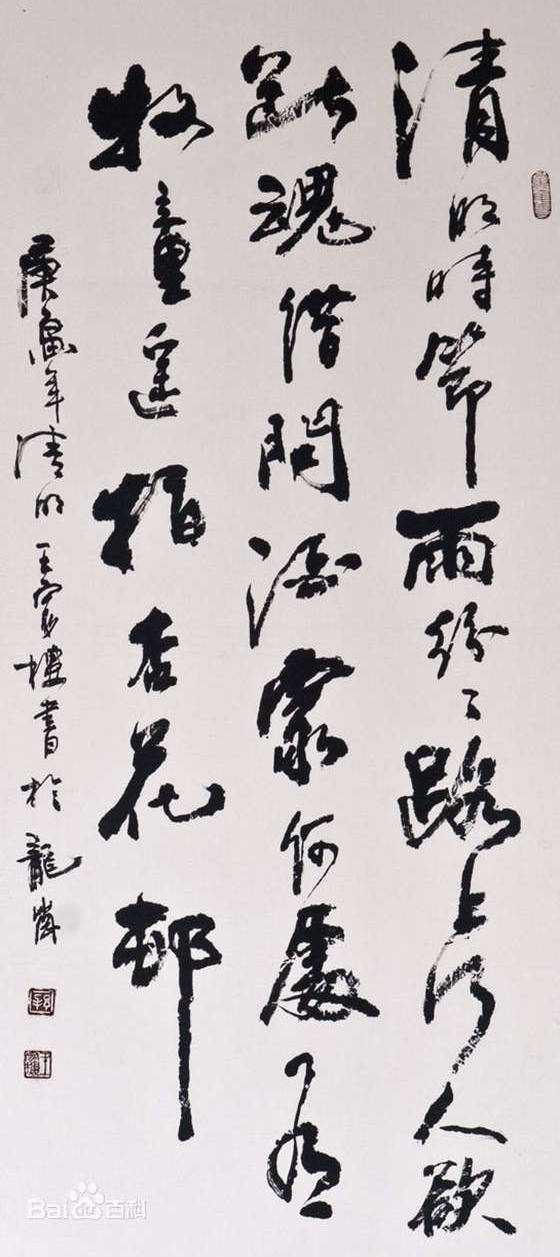 清明時節雨紛々路上行人欲
斷魂借問酒家何處有
牧童遥指杏花邨
庚寅年清明王樓書於龍
Bai百科